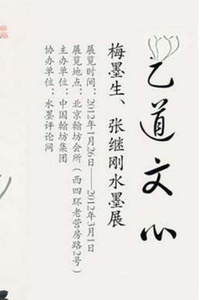 艺道文心
梅墨生、张继刚水墨展
展览时间：2012年1月26日——2012年3月1日
展览地点：北京翰坊会所（西四环老营房路2号）
主办单位：中国翰坊集团
协办单位：水墨评论网